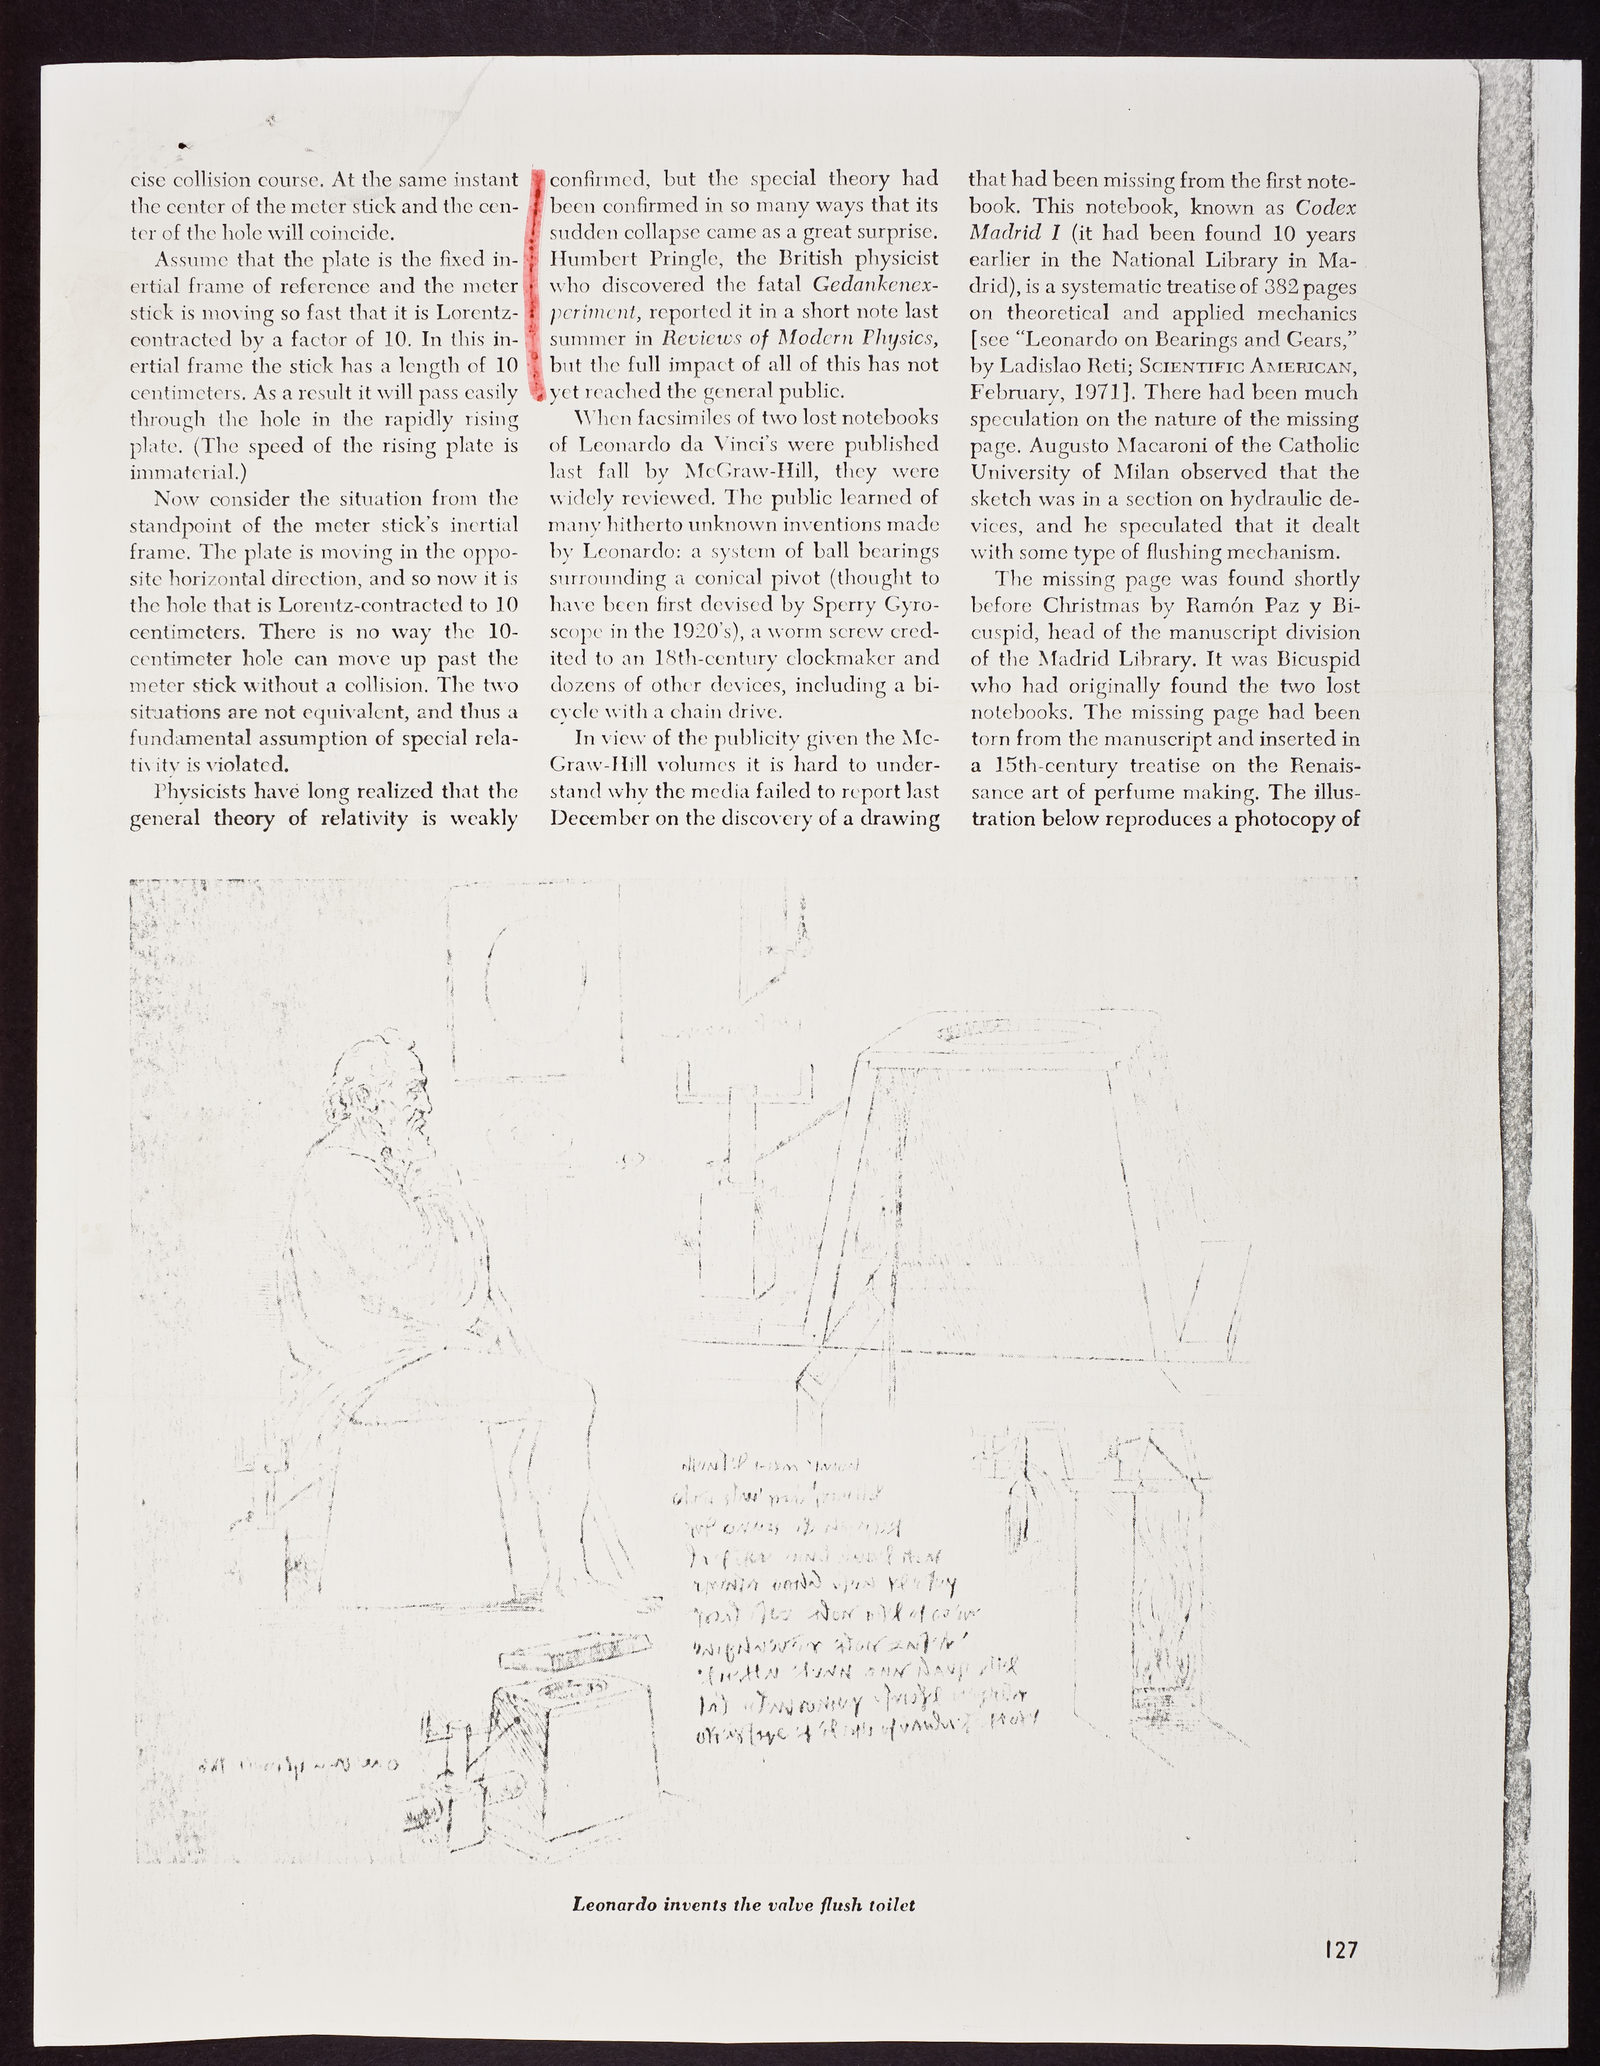 cise collision course. At the same instant
the center of the meter stick and the cen-
ter of the hole will coincide.
Assume that the plate is the fixed in-
ertial frame of reference and the meter
stick is moving so fast that it is Lorentz-
contracted by a factor of 10. In this in-
ertial frame the stick has a length of 10
centimeters. As a result it will pass easily
through the hole in the rapidly rising
plate. (The speed of the rising plate is
immaterial.)
Now consider the situation from the
standpoint of the meter stick's inertial
frame. The plate is moving in the oppo-
site horizontal direction, and so now it is
the hole that is Lorentz-contracted to 10
centimeters. There is no way the 10-
centimeter hole can move up past the
meter stick without a collision. The two
situations are not equivalent, and thus a
fundamental assumption of special rela-
tivity is violated.
Physicists have long realized that the
general theory of relativity is weakly
confirmed, but the special theory had
been confirmed in so many ways that its
sudden collapse came as a great surprise.
Humbert Pringle, the British physicist
who discovered the fatal Gedankenex-
periment, reported it in a short note last
summer in Reviews of Modern Physics,
but the full impact of all of this has not
yet reached the general public.
When facsimiles of two lost notebooks
of Leonardo da Vinci's were published
last fall by McGraw-Hill, they were
widely reviewed. The public learned of
many hitherto unknown inventions made
by Leonardo: a system of ball bearings
surrounding a conical pivot (thought to
have been first devised by Sperry Gyro-
scope in the 1920's), a worm screw cred-
ited to an 18th-century clockmaker and
dozens of other devices, including a bi-
cycle with a chain drive.
In view of the publicity given the Mc-
Graw-Hill volumes it is hard to under-
stand why the media failed to report last
December on the discovery of a drawing
that had been missing from the first note-
book. This notebook, known as Codex
Madrid I (it had been found 10 years
earlier in the National Library in Ma-
drid), is a systematic treatise of 382 pages
on theoretical and applied mechanics
[see "Leonardo on Bearings and Gears,"
by Ladislao Reti; SCIENTIFIC AMERICAN,
February, 1971]. There had been much
speculation on the nature of the missing
page. Augusto Macaroni of the Catholic
University of Milan observed that the
sketch was in a section on hydraulic de-
vices, and he speculated that it dealt
with some type of flushing mechanism.
The missing page was found shortly
before Christmas by Ramón Paz y Bi-
cuspid, head of the manuscript division
of the Madrid Library. It was Bicuspid
who had originally found the two lost
notebooks. The missing page had been
torn from the manuscript and inserted in
a 15th-century treatise on the Renais-
sance art of perfume making. The illus-
tration below reproduces a photocopy of
Leonardo invents the valve flush toilet
127